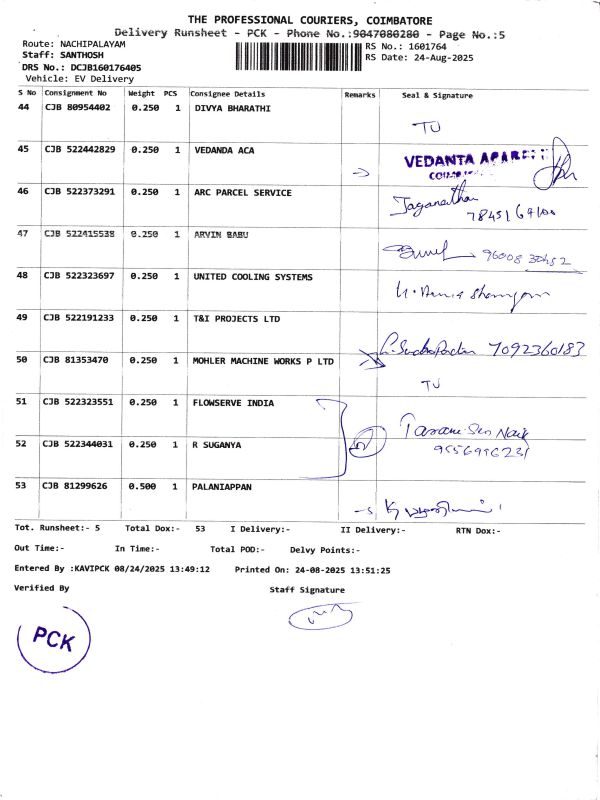 THE PROFESSIONAL COURIERS, COIMBATORE
Delivery Runsheet - PCK - Phone No.:9047080280 - Page No.:5
Route: NACHIPALAYAM
RS No.: 1601764
Staff: SANTHOSH
RS Date: 24-Aug-2025
DRS No.: DCJB160176405
Vehicle: EV Delivery
S No Consignment No Weight PCS Consignee Details Remarks Seal & Signature
44 CJB 80954402 0.250 1 DIVYA BHARATHI
TU
45 CJB 522442829 0.250 1 VEDANDA ACA
VEDANTA
46 CJB 522373291 0.250 1 ARC PARCEL SERVICE
Jaganathan
47 CJB 522415538 0.250 1 ARVIN BABU
48 CJB 522323697 0.250 1 UNITED COOLING SYSTEMS
49 CJB 522191233 0.250 1 T&I PROJECTS LTD
7092360183
50 CJB 81353470 0.250 1 MOHLER MACHINE WORKS P LTD
TU
51 CJB 522323551 0.250 1 FLOWSERVE INDIA
52 CJB 522344031 0.250 1 R SUGANYA
53 CJB 81299626 0.500 1 PALANIAPPAN
Tot. Runsheet:- 5 Total Dox:- 53 I Delivery:- II Delivery:- RTN Dox:-
Out Time:- In Time:- Total POD:- Delvy Points:-
Entered By :KAVIPCK 08/24/2025 13:49:12 Printed On: 24-08-2025 13:51:25
Verified By Staff Signature
PCK